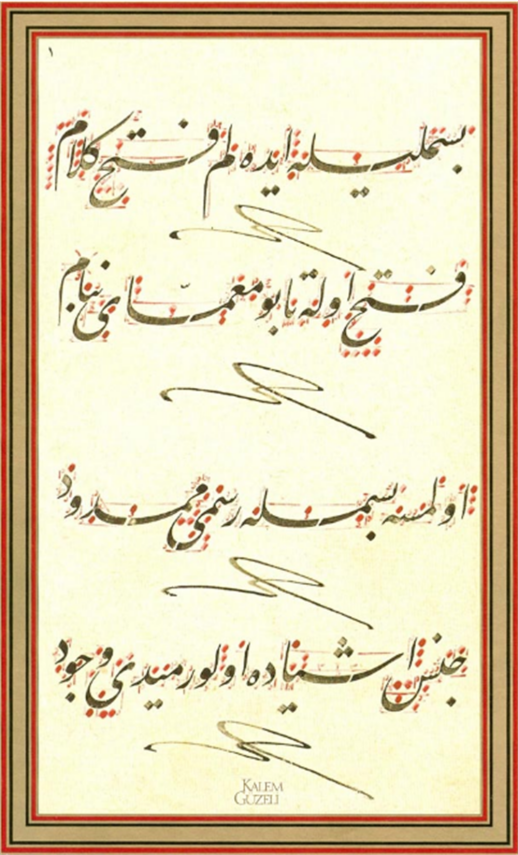 ١
بسمليله ايده لم فتح كلام
فتح اوله تا بو معماى بنام
اولمسه بسمله رسمى ممدود
جنس اشياده اولورميدى وجود
KALEM GÜZELİ